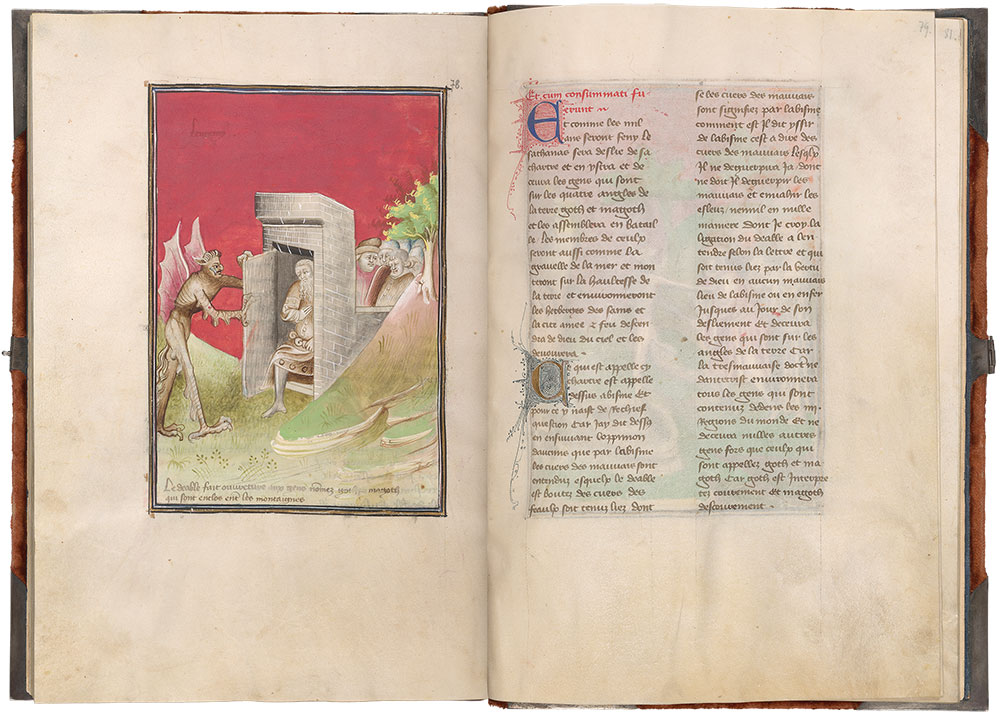 78.
Le deable fait ouverture aux gens nommez goth et magoth
qui sont enclos entre les montaignes
79.
81.
Et cum consummati fu
erunt
Et comme les mil
ans seront feny le
sathanas sera deslie de sa
chartre et en ystra et de
cevra les gens qui sont
sur les quatre angles de
la terre goth et magoth
et les assemblera en batail
le. Les membres de ceulx
seront aussi comme la
gravelle de la mer et mon
teront sur la haultesse de
la terre et environneront
les herberges des sains et
la cite amee Et feu descen
dra de dieu du ciel et les
devourera.
Ce qui est appelle cy
chartre est appelle
dessus abisme Et
pour ce y naist de rechief
question Car jay dit dessus
en ensuivant loppinion
daucuns que par labisme
les cuers des mauvais sont
entendus esquelx le deable
est boutez des cuers des
feaulx soit tenu liez dont
se les cuers des mauvais
sont signifiez par labisme
comment est il dit yssir
de labisme cest a dire des
cuers des mauvais lesquelx
Il ne deguerpira ja dont
ne doit Il deguerpir les
mauvais et envair les
esleuz nennil en nulle
maniere dont je croy la
ligation du deable a len
tendre selon la lettre et qui
soit tenus liez par la vertu
de dieu en aucun mauvais
lieu de labisme ou en enfer
Jusques au Jour de son
desliement Et decevra
les gens qui sont sur les
angles de la terre Car
la tresmauvaise doctrine
dantecrist environnera
tous les gens qui sont
contenuz dedens les iiii.
Regions du monde Et ne
decevra nulles autres
gens fors que ceulx qui
sont appellez goth et ma
goth Car goth est interpre
tez couvrement et magoth
descouvrement.